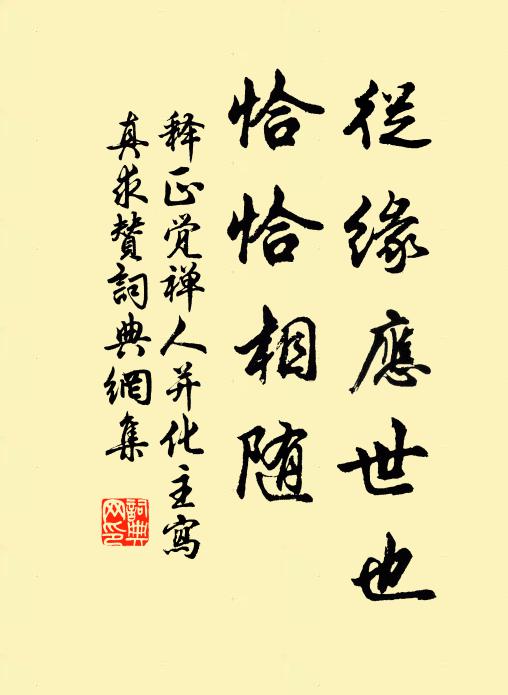 從緣應世也
恰恰相随
释正觉禅人并化主寫
真求贊詞典網集
詞典网印